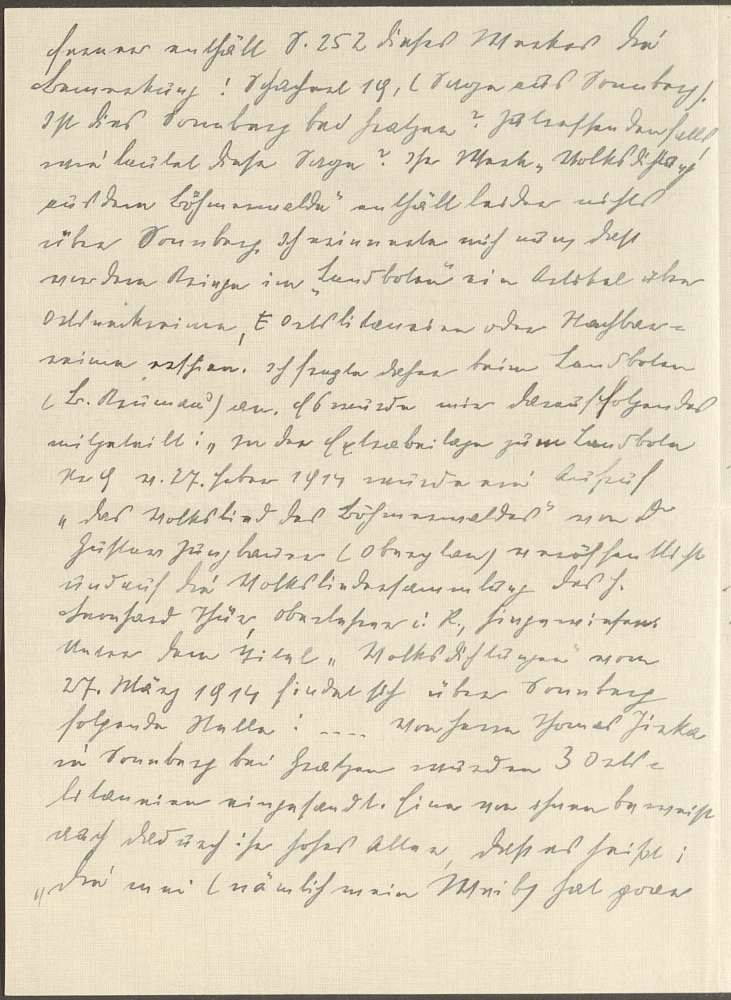 Ferner enthält S. 252 dieses Werkes die
Bemerkung: Schachtel 19, (Sage aus Sonnberg).
Ist dies Sonnberg bei Gratzen? Zutreffendenfalls,
wie lautet diese Sage? Ihr Werk „Volksdichtung
aus dem Böhmerwalde" enthält leider nichts
über Sonnberg. Ich erinnerte mich nun, daß
vor dem Kriege im „Landboten" ein Artikel über
Ortsneckreime, Ortslitaneien oder Nachbar=
reime erschien. Ich fragte daher beim Landboten
(B. Krumau) an. Es wurde mir darauf folgendes
mitgeteilt: „In der Extrabeilage zum Landboten
Nr 9 v. 27. Feber 1914 wurde ein Aufruf
„das Volkslied des Böhmerwaldes" von Dr
Gustav Jungbauer (Oberplan) veröffentlicht
und auf die Volksliedersammlung des H.
Leonhard Thür, Oberlehrer i. R., hingewiesen.
Unter dem Titel „Volksdichtungen" vom
27. März 1914 findet sich über Sonnberg
folgende Stelle: .... Von Herrn Thomas Jirka
in Sonnberg bei Gratzen wurden 3 Orts=
litaneien eingesandt. Eine von ihnen beweist
auch dadurch ihr hohes Alter, daß es heißt:
„die mei (nämlich mein Weib) hat